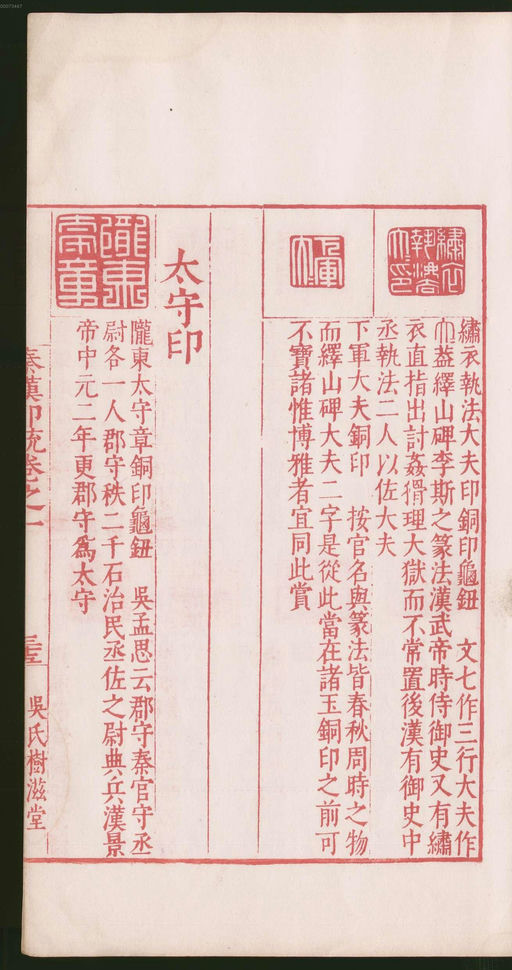 繡衣執法大夫印銅印龜鈕　文七作三行大夫作
夶葢繹山碑李斯之篆法漢武帝時侍御史又有繡
衣直指出討姦猾理大獄而不常置後漢有御史中
丞執法二人以佐大夫
下軍大夫銅印　按官名與篆法皆春秋周時之物
而繹山碑大夫二字是從此當在諸玉銅印之前可
不寶諸惟博雅者宜同此賞
太守印
隴東太守章銅印龜鈕　吳孟思云郡守秦官守丞
尉各一人郡守秩二千石治民丞佐之尉典兵漢景
帝中元二年更郡守爲太守
秦漢印統卷之一
吳氏樹滋堂
00073447